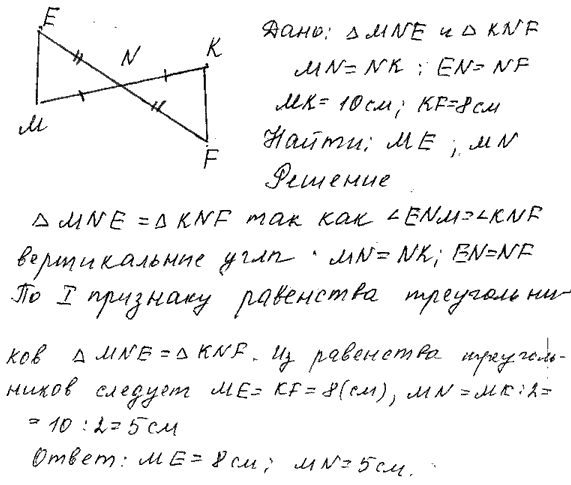 E
N
K
M
F
Дано: △ MNE и △ KNF
MN = NK ; EN = NF
MK = 10 см ; KF = 8 см
Найти: ME ; MN
Решение
△ MNE = △ KNF так как ∠ENM = ∠KNF
вертикальные углы . MN = NK; EN = NF
По I признаку равенства треугольни
ков △ MNE = △ KNF. Из равенства треуголь-
ников следует ME = KF = 8 (см), MN = MK : 2 =
= 10 : 2 = 5 см
Ответ: ME = 8 см; MN = 5 см.